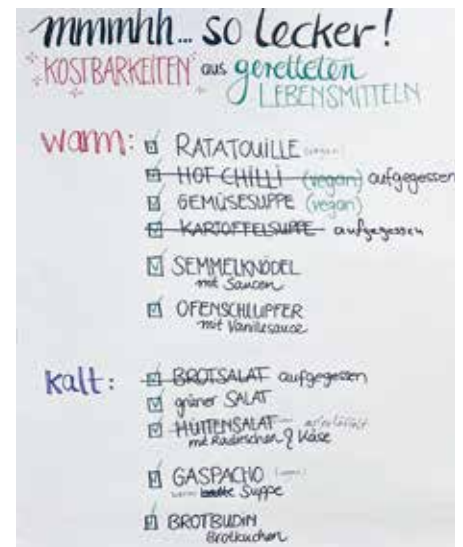 mmmhh... so lecker!
KOSTBARKEITEN aus geretteten
LEBENSMITTELN
warm: RATATOUILLE
HOT CHILLI (vegan) aufgegessen
GEMÜSESUPPE (vegan)
KARTOFFELSUPPE aufgegessen
SEMMELKNÖDEL
mit Saucen
OFENSCHLUPFER
mit Vanillesauce
kalt: BROTSALAT aufgegessen
grüner SALAT
HÜTTENSALAT
mit Radieschen & Käse
GASPACHO
Suppe
BROTBUDIN
Brotkuchen